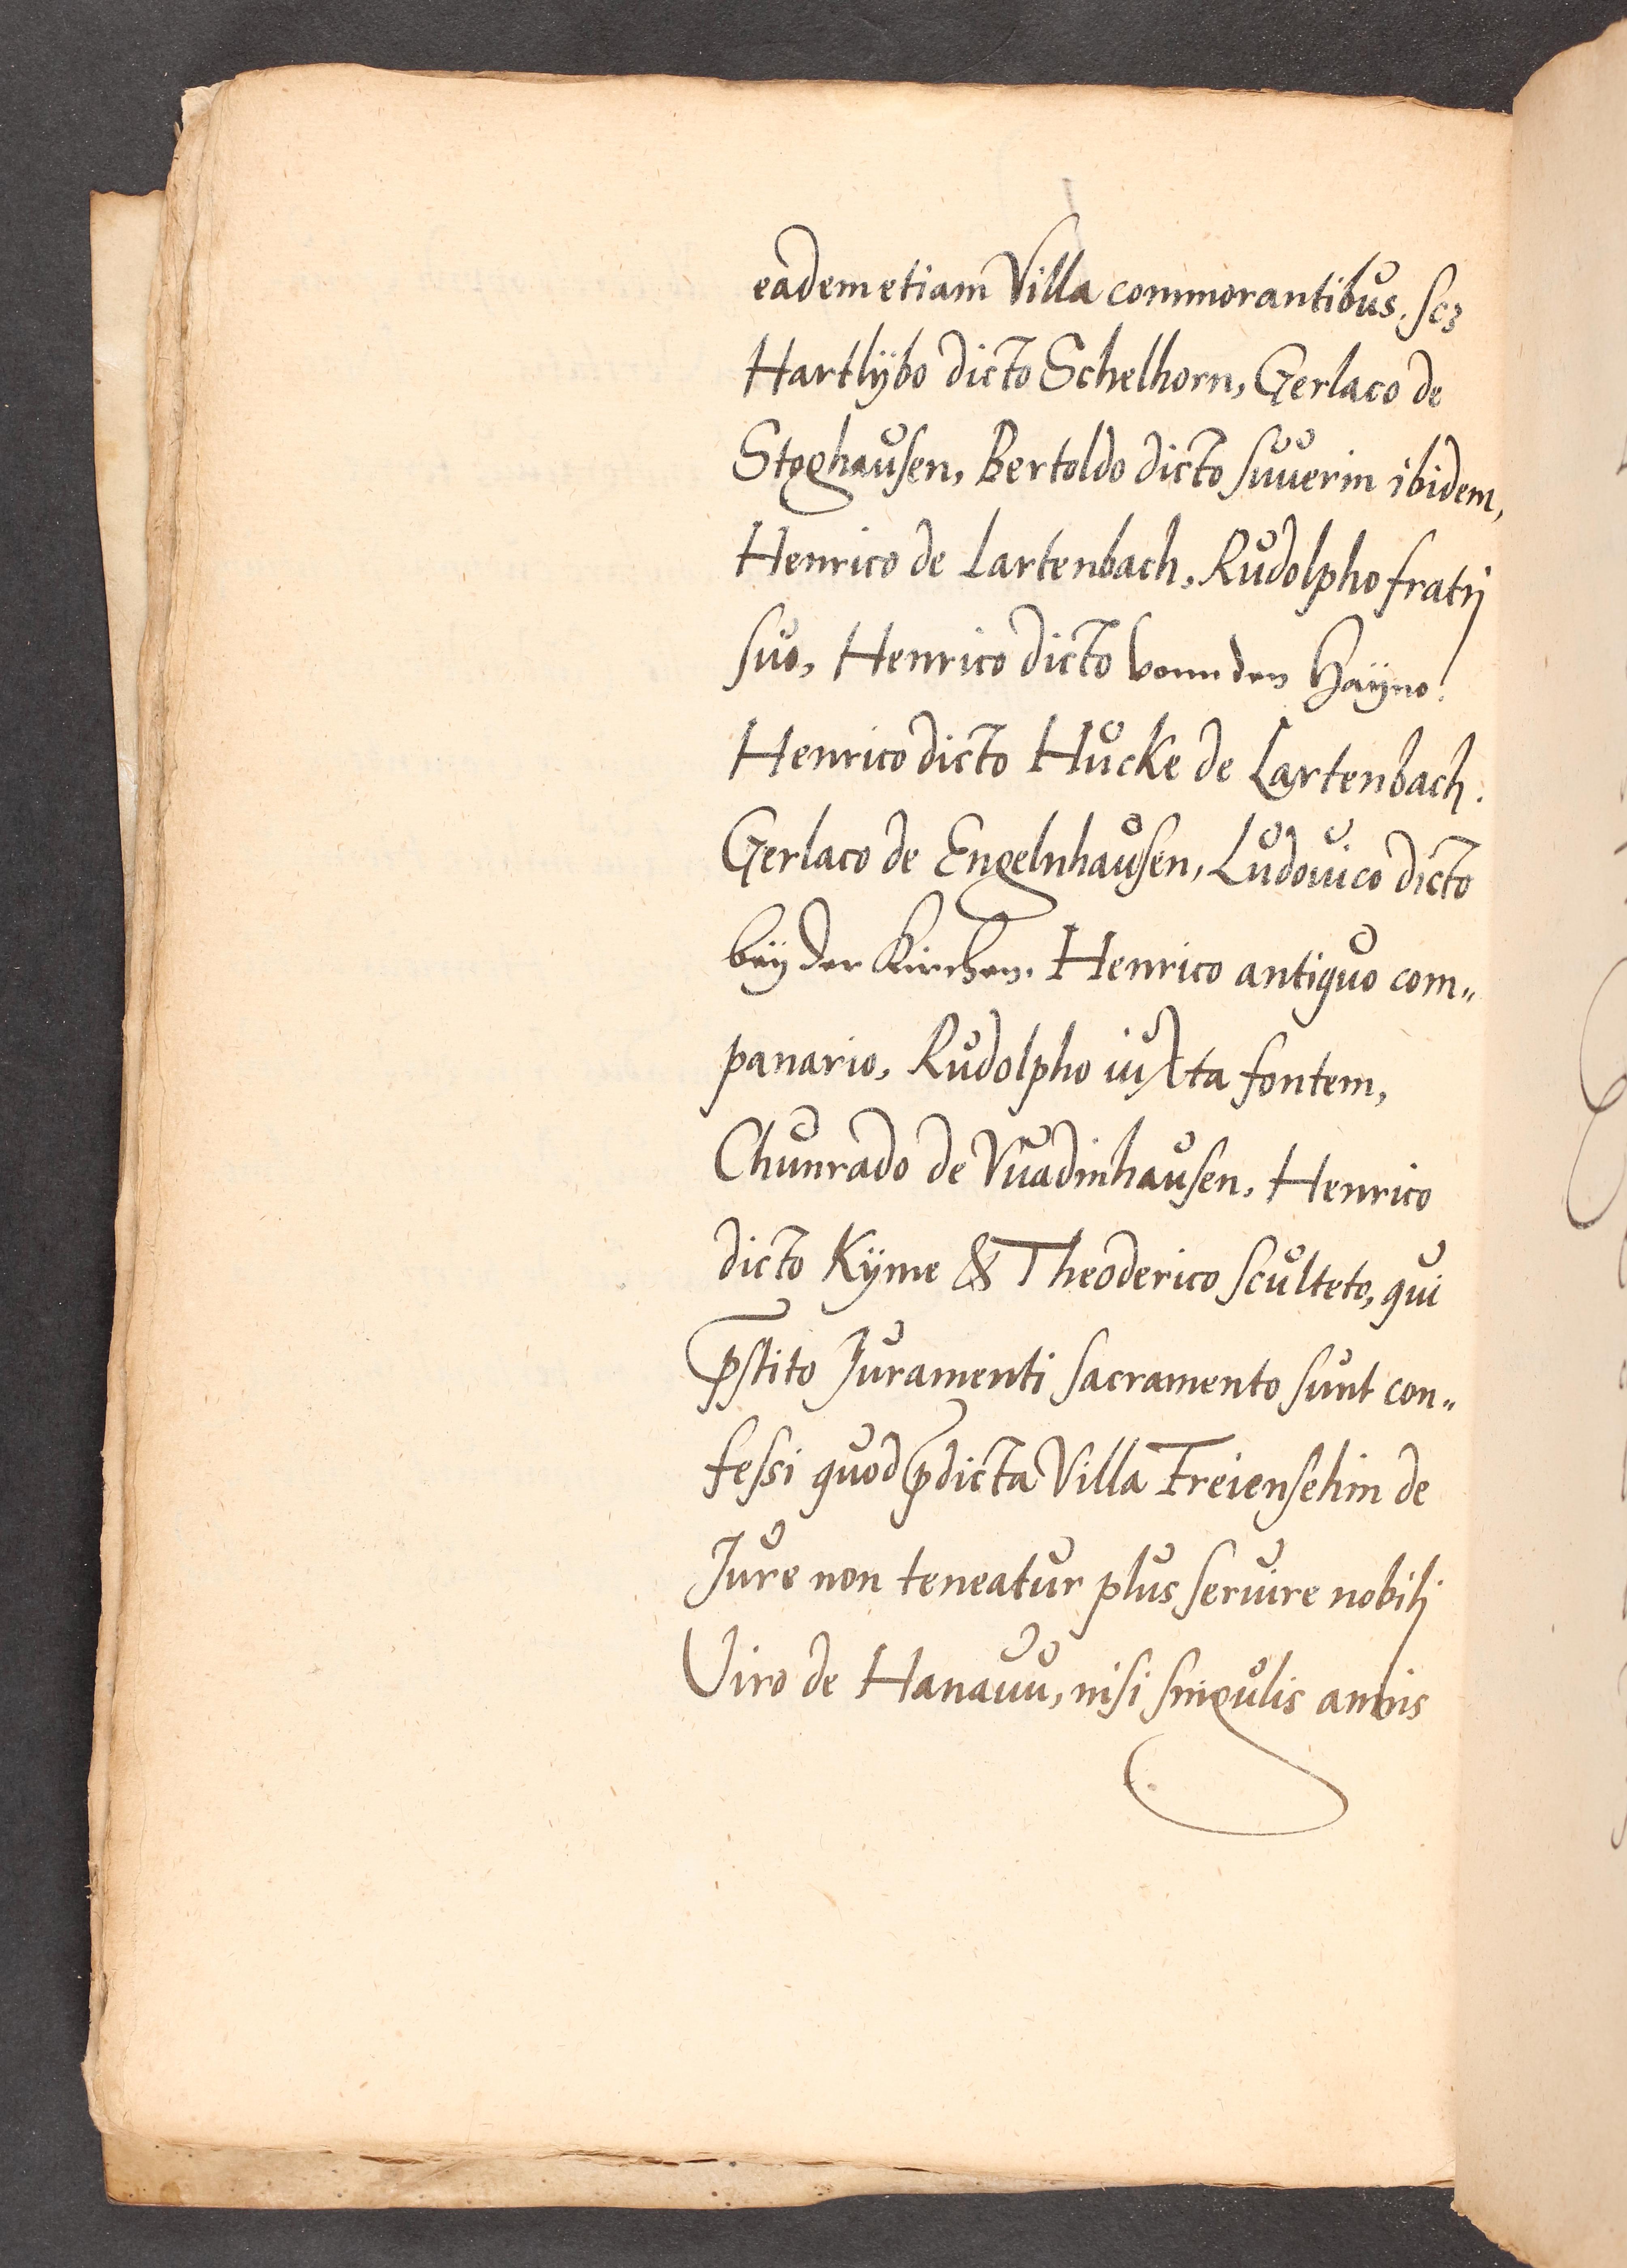 eadem etiam Villa commorantibus. scz
Hartlÿbo dicto Schelhorn, Gerlaco de
Stoghausen, Bertoldo dicto suuerin ibidem,
Henrico de Lartenbach, Rudolpho fratrj
suo, Henrico dicto vonn den Haÿno.
Henrico dicto Hucke de Lartenbach.
Gerlaco de Engelnhausen, Ludouico dicto
beÿ der Kirchen. Henrico antiquo com„
panario, Rudolpho iuxta fontem,
Chunrado de Vuadinhausen, Henrico
dicto Kÿme & Theoderico sculteto, qui
p̄stito Juramenti sacramento sunt con„
fessi quod p̄dicta Villa Freiensehin de
Jure non teneatur plus seruire nobilj
Viro de Hanauu, nisi singulis annis